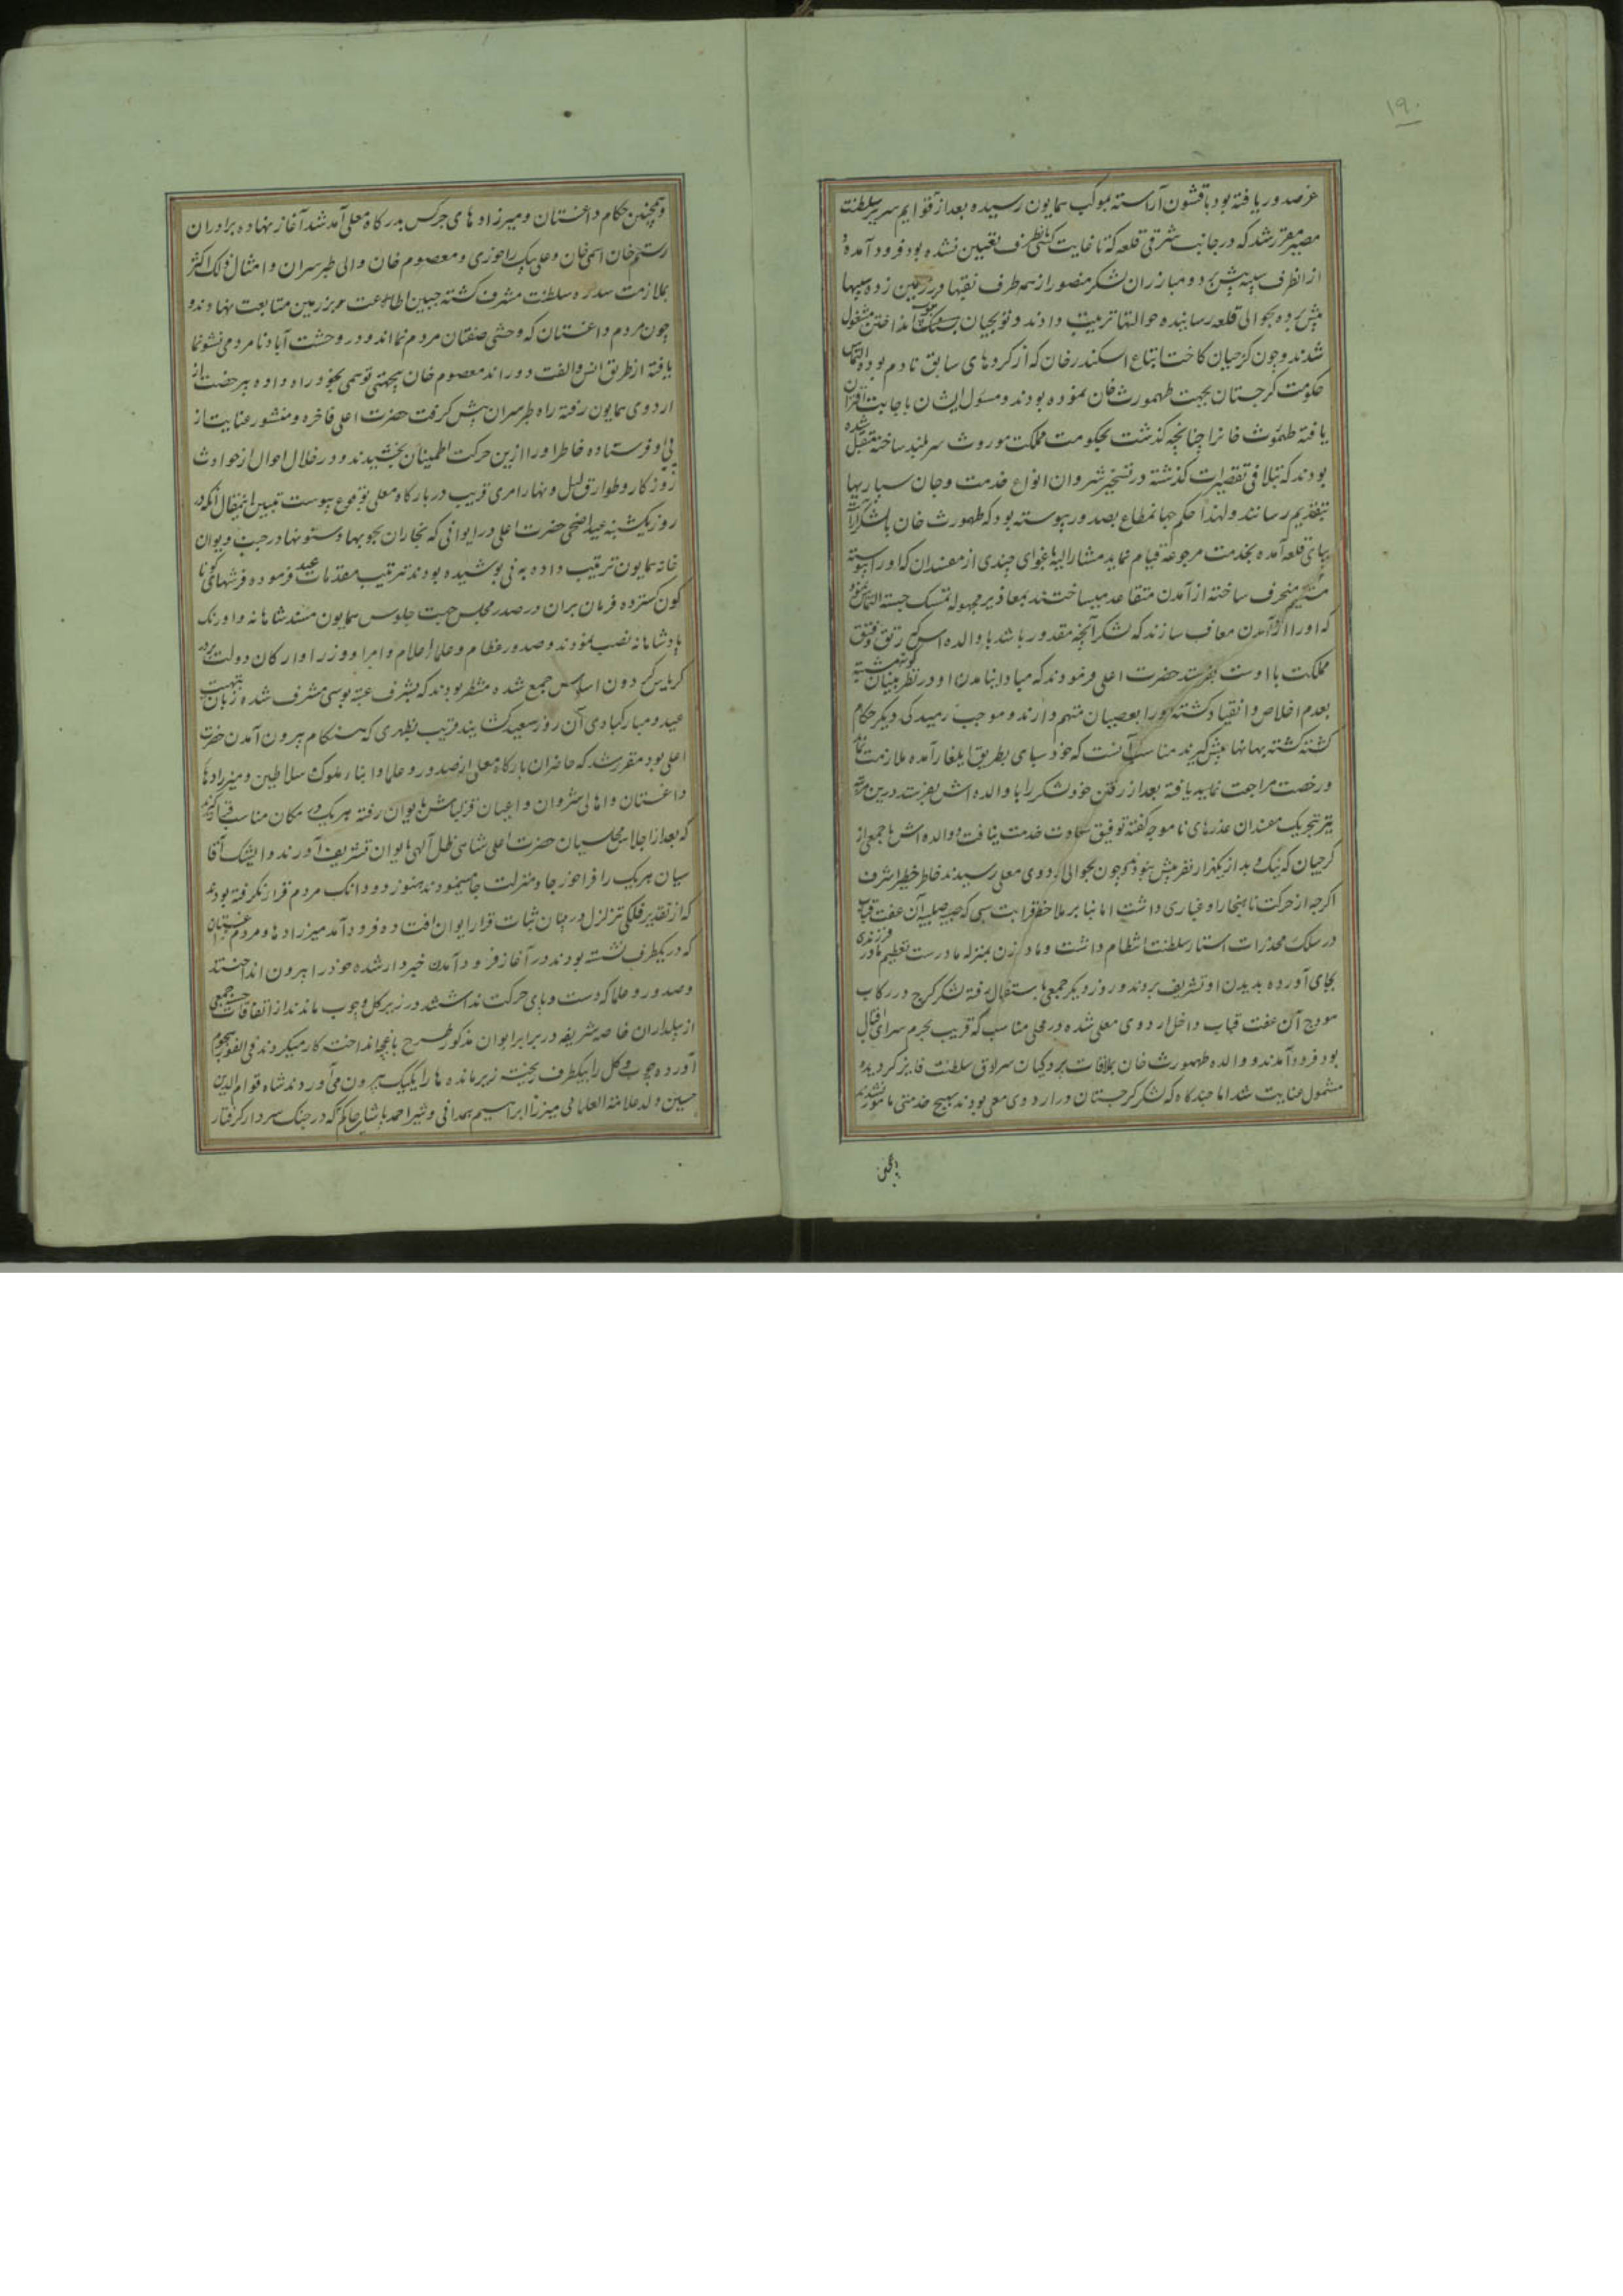 ۱۹۰
عز صدور یافته بود با قشون آراسته بموکب همایون رسیده بعد از قوایم سریر سلطنت
مصیر مقرر شد که در جانب شرقی قلعه که تا غایت کسی بطرف تعیین نشده بود فرود آمده و
از انطرف سیبه پیش برد و مبارزان لشکر منصور از همه طرف نقبها در زیر زمین زده سیبها
پیش برده بحوالی قلعه رسانیده حوالتها ترتیب دادند و توپچیان بسنک توپ انداختن مشغول
شدند و چون کرجیان کاخت اتباع اسکندر خان که از کردهای سابق نادم بوده التماس
حکومت کرجستان بجهت طهمورث خان نموده بودند و مسئول ایشان باجابت اقتران
یافته طهمورث خانرا چنانچه کذشت بحکومت مملکت موروث سربلند ساخته متقبل شده
بودند که بتلافی تقصیرات کذشته در تسخیر شروان انواع خدمت و جان سپاریها
بتقدیم رسانند و لهذا حکم جهانمطاع بصدور پیوسته بود که طهمورث خان با لشکر کرجستان
بپای قلعه آمده بخدمت مرجوعه قیام نماید مشارالیه باغوای چندی از مفسدان که او را پیوسته
منحرف ساخته از آمدن متقاعد میساختند بمعاذیر مجهوله تمسک جسته التماس نمود
که او را از آمدن معاف سازند که لشکر آنچه مقدور باشد با والده اش که رتق و فتق
مملکت با اوست بفرستد حضرت اعلی فرمودند که مبادا بنا مدن او در نظر کوته بینان
بعدم اخلاص و انقیاد کشته او را بعصیان متهم دارند و موجب رمیدکی دیکر حکام
کشته کشته بهانها پیش کیرند مناسب آنست که خود سپاهی بطریق ایلغار آمده ملازمت نماید
و رخصت مراجعت نماید یافته بعد از رفتن خود لشکر را با والده اش بفرستد درین مرتبه
نیز بتحریک مفسدان عذرهای ناموجه کفته توفیق سعادت خدمت نیافت و والده اش با جمعی از
کرجیان که نیک و بد از یکهزار نفر بیش نبودند چون بحوالی اردوی معلی رسیدند خاطر خطیر اشرف
اکرچه از حرکت ناهنجار او غباری داشت اما بنا بر ملاحظه قرابت سببی که صبیه صلبیه آن عفت قباب
در سلک مخدرات استار سلطنت انتظام داشت و مادر زن بمنزله مادرست تعظیم مادر فرزندی
بجای آورده بدیدن او تشریف بردند و روز دیکر جمعی باستقبال رفته لشکر کرج در رکاب
هودج آن عفت قباب داخل اردوی معلی شده در محلی مناسب که قریب بحرم سرای اقبال
بود فرود آمدند و والده طهمورث خان بملاقات پردکیان سرادق سلطنت فایز کردیده
مشمول عنایت شد اما چندکاه که لشکر کرجستان در اردوی معلی بودند بهیچ خدمتی مامور نشدند
و همچنین حکام داغستان و میرزادهای چرکس بدرکاه معلی آمد شد آغاز نهاده برادران
رستم خان اسمی خان و علی بیک زاخوری و معصوم خان والی طبرسران و امثال ذلک اکثر
بملازمت سدره سلطنت مشرف کشته جبین اطاعت بر زمین متابعت نهادند و
چون مردم داغستان که وحشی صفتان مردم نما اند و در وحشت آباد نامردمی نشو نما
یافته از طریق انس و الفت دور اند معصوم خان بیجهتی توهمی بخود راه داده بی رخصت از
اردوی همایون رفته راه طبرسران پیش کرفت حضرت اعلی فاخره و منشور عنایت از
پی او فرستاده خاطر او را ازین حرکت اطمینان بخشیدند و در خلال احوال از حوادث
روزکار و طوارق لیل و نهار امری قریب در بارکاه معلی بوقوع پیوست تبیین اینمقال آنکه در
روز یکشنبه عید اضحی حضرت اعلی در ایوانی که نجاران بچوبها و ستونها در جنب دیوان
خانه همایون ترتیب داده به نی پوشیده بودند ترتیب مقدمات عید فرموده فرشهای کونا
کون کسترده فرمان بران در صدر مجلس جهت جلوس همایون مسند شاهانه و اورنک
پادشاهانه نصب نمودند و صدور عظام و علما اعلام و امرا و وزرا و ارکان دولت بر در
کریاس کردون اساس جمع شده منتظر بودند که بشرف عتبه بوسی مشرف شده زبان بتهنیت
عید و مبارکبادی آن روز سعید کشایند قریب بظهری که هنکام بیرون آمدن حضرت
اعلی بود مقرر شد که حاضران بارکاه معلی از صدور و علما و ابناء ملوک سلاطین و میرزادهای
داغستان و اهالی شروان و اعیان قزلباش بایوان رفته هر یک در مکان مناسب قرار کیرند
که بعد از اجلاس مجلسیان حضرت اعلی شاهی ظل الهی بایوان تشریف آورند و ایشک آقا
سیان هر یک را فراخور جا و منزلت جا مینمودند هنوز دو دانک مردم قرار نکرفته بودند
که از تقدیر فلکی تزلزل در بنیان ثبات قرار ایوان افتاده فرود آمد میرزادها و مردم داغستان
که در یکطرف نشسته بودند در آغاز فرود آمدن خبردار شده خود را بیرون انداختند
و صدور و علما که دست و پای حرکت نداشتند در زیر کل و چوب ماندند از اتفاقات حسنه جمعی
از بیلداران خاصه شریفه در برابر ایوان مذکور طرح باغچه انداخته کار میکردند فی الفور هجوم
آورده چوب و کل را بیکطرف ریخته زیر مانده ها را یکیک بیرون می آوردند شاه قوام الدین
حسین ولد علامة العلمایی میرزا ابراهیم همدانی و شیر احمد پاشا حاکم که در جنک سردار کرفتار